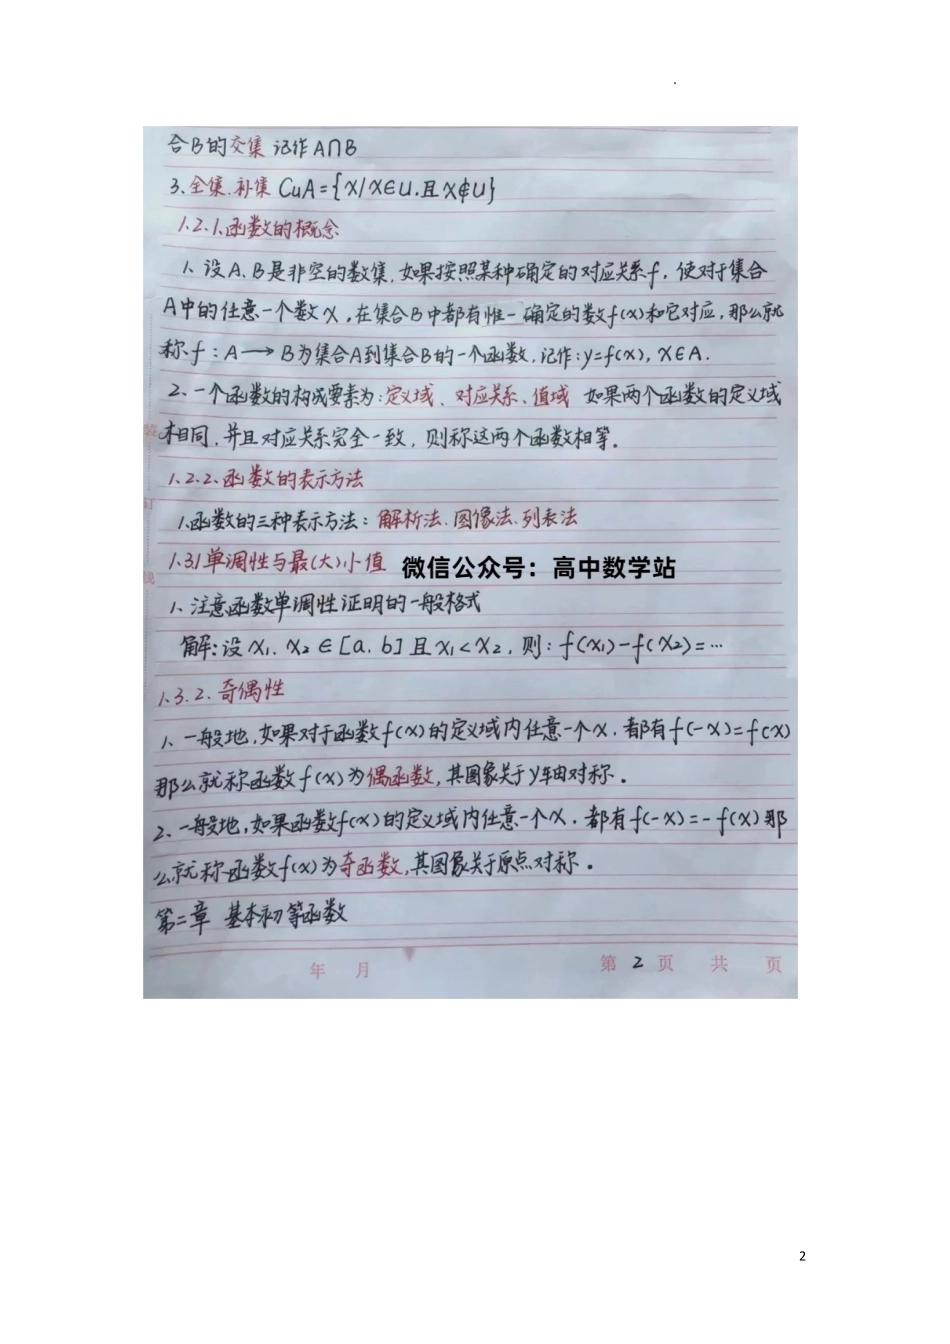 合B的交集 记作A∩B
3、全集.补集 CuA={x/x∈U.且x∉U}
1.2.1.函数的概念
1、设A、B是非空的数集,如果按照某种确定的对应关系f,使对于集合
A中的任意一个数x,在集合B中都有惟一确定的数f(x)和它对应,那么就
称f:A→B为集合A到集合B的一个函数,记作:y=f(x),x∈A.
2、一个函数的构成要素为:定义域、对应关系、值域 如果两个函数的定义域
相同,并且对应关系完全一致,则称这两个函数相等。
1.2.2.函数的表示方法
1.函数的三种表示方法:解析法.图像法.列表法
1.31单调性与最(大)小值 微信公众号:高中数学站
1、注意函数单调性证明的一般格式
解:设x₁、x₂∈[a.b]且x₁<x₂,则:f(x₁)-f(x₂)=…
1.3.2.奇偶性
1、一般地,如果对于函数f(x)的定义域内任意一个x,都有f(-x)=f(x)
那么就称函数f(x)为偶函数,其图象关于y轴由对称。
2、一般地,如果函数f(x)的定义域内任意一个x,都有f(-x)=-f(x)那
么就称函数f(x)为奇函数,其图象关于原点对称。
第二章 基本初等函数
年 月 第2页 共 页
装
订
线
2